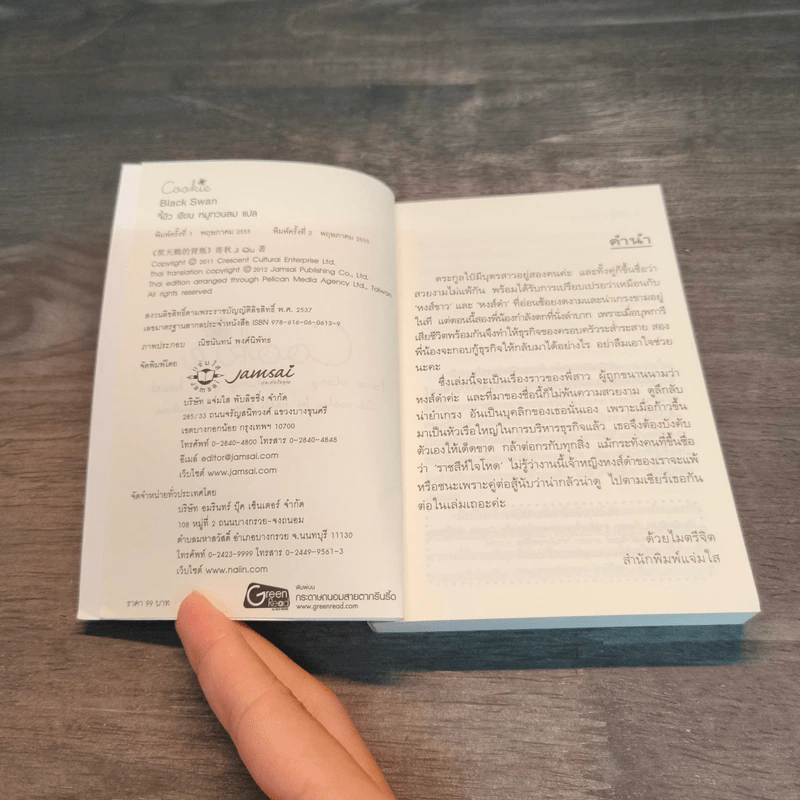 Cookie
Black Swan
จี้ชิว เขียน หมูทวนลม แปล
พิมพ์ครั้งที่ 1 พฤษภาคม 2555 พิมพ์ครั้งที่ 2 พฤษภาคม 2555
《黑天鵝的背叛》寄秋 Ji Qiu 著
Copyright © 2011 Crescent Cultural Enterprise Ltd.
Thai translation copyright © 2012 Jamsai Publishing Co., Ltd.
Thai edition arranged through Pelican Media Agency Ltd., Taiwan
All rights reserved
สงวนลิขสิทธิ์ตามพระราชบัญญัติลิขสิทธิ์ พ.ศ. 2537
เลขมาตรฐานสากลประจำหนังสือ ISBN 978-616-06-0613-9
ภาพประกอบ ณิชนันทน์ พงศ์นิพัทธ
จัดพิมพ์โดย
แจ่มใส
Jamsai
Jamsai
บริษัท แจ่มใส พับลิชชิ่ง จำกัด
285/33 ถนนจรัญสนิทวงศ์ แขวงบางขุนศรี
เขตบางกอกน้อย กรุงเทพฯ 10700
โทรศัพท์ 0-2840-4800 โทรสาร 0-2840-4848
อีเมล์ editor@jamsai.com
เว็บไซต์ www.jamsai.com
จัดจำหน่ายทั่วประเทศโดย
บริษัท อมรินทร์ บุ๊ค เซ็นเตอร์ จำกัด
108 หมู่ที่ 2 ถนนบางกรวย-จงถนอม
ตำบลมหาสวัสดิ์ อำเภอบางกรวย จ.นนทบุรี 11130
โทรศัพท์ 0-2423-9999 โทรสาร 0-2449-9561-3
เว็บไซต์ www.naiin.com
ราคา 99 บาท
Green Read
พิมพ์บน
กระดาษถนอมสายตากรีนรี้ด
www.greenread.com
คำนำ
ตระกูลไป๋มีบุตรสาวอยู่สองคนค่ะ และทั้งคู่ก็ขึ้นชื่อว่า
สวยงามไม่แพ้กัน พร้อมได้รับการเปรียบเปรยว่าเหมือนกับ
‘หงส์ขาว’ และ ‘หงส์ดำ’ ที่อ่อนช้อยงดงามและน่าเกรงขามอยู่
ในที แต่ตอนนี้สองพี่น้องกำลังตกที่นั่งลำบาก เพราะเมื่อบุพการี
เสียชีวิตพร้อมกันจึงทำให้ธุรกิจของครอบครัวระส่ำระสาย สอง
พี่น้องจะกอบกู้ธุรกิจให้กลับมาได้อย่างไร อย่าลืมเอาใจช่วย
นะคะ
ซึ่งเล่มนี้จะเป็นเรื่องราวของพี่สาว ผู้ถูกขนานนามว่า
หงส์ดำค่ะ และที่มาของชื่อนี้ก็ไม่พ้นความสวยงาม ดูลึกลับ
น่ายำเกรง อันเป็นบุคลิกของเธอนั่นเอง เพราะเมื่อก้าวขึ้น
มาเป็นหัวเรือใหญ่ในการบริหารธุรกิจแล้ว เธอจึงต้องบังคับ
ตัวเองให้เด็ดขาด กล้าต่อกรกับทุกสิ่ง แม้กระทั่งคนที่ขึ้นชื่อ
ว่า ‘ราชสีห์ใจโหด’ ไม่รู้ว่างานนี้เจ้าหญิงหงส์ดำของเราจะแพ้
หรือชนะเพราะคู่ต่อสู้นับว่าน่ากลัวน่าดู ไปตามเชียร์เธอกัน
ต่อในเล่มเถอะค่ะ
ด้วยไมตรีจิต
สำนักพิมพ์แจ่มใส